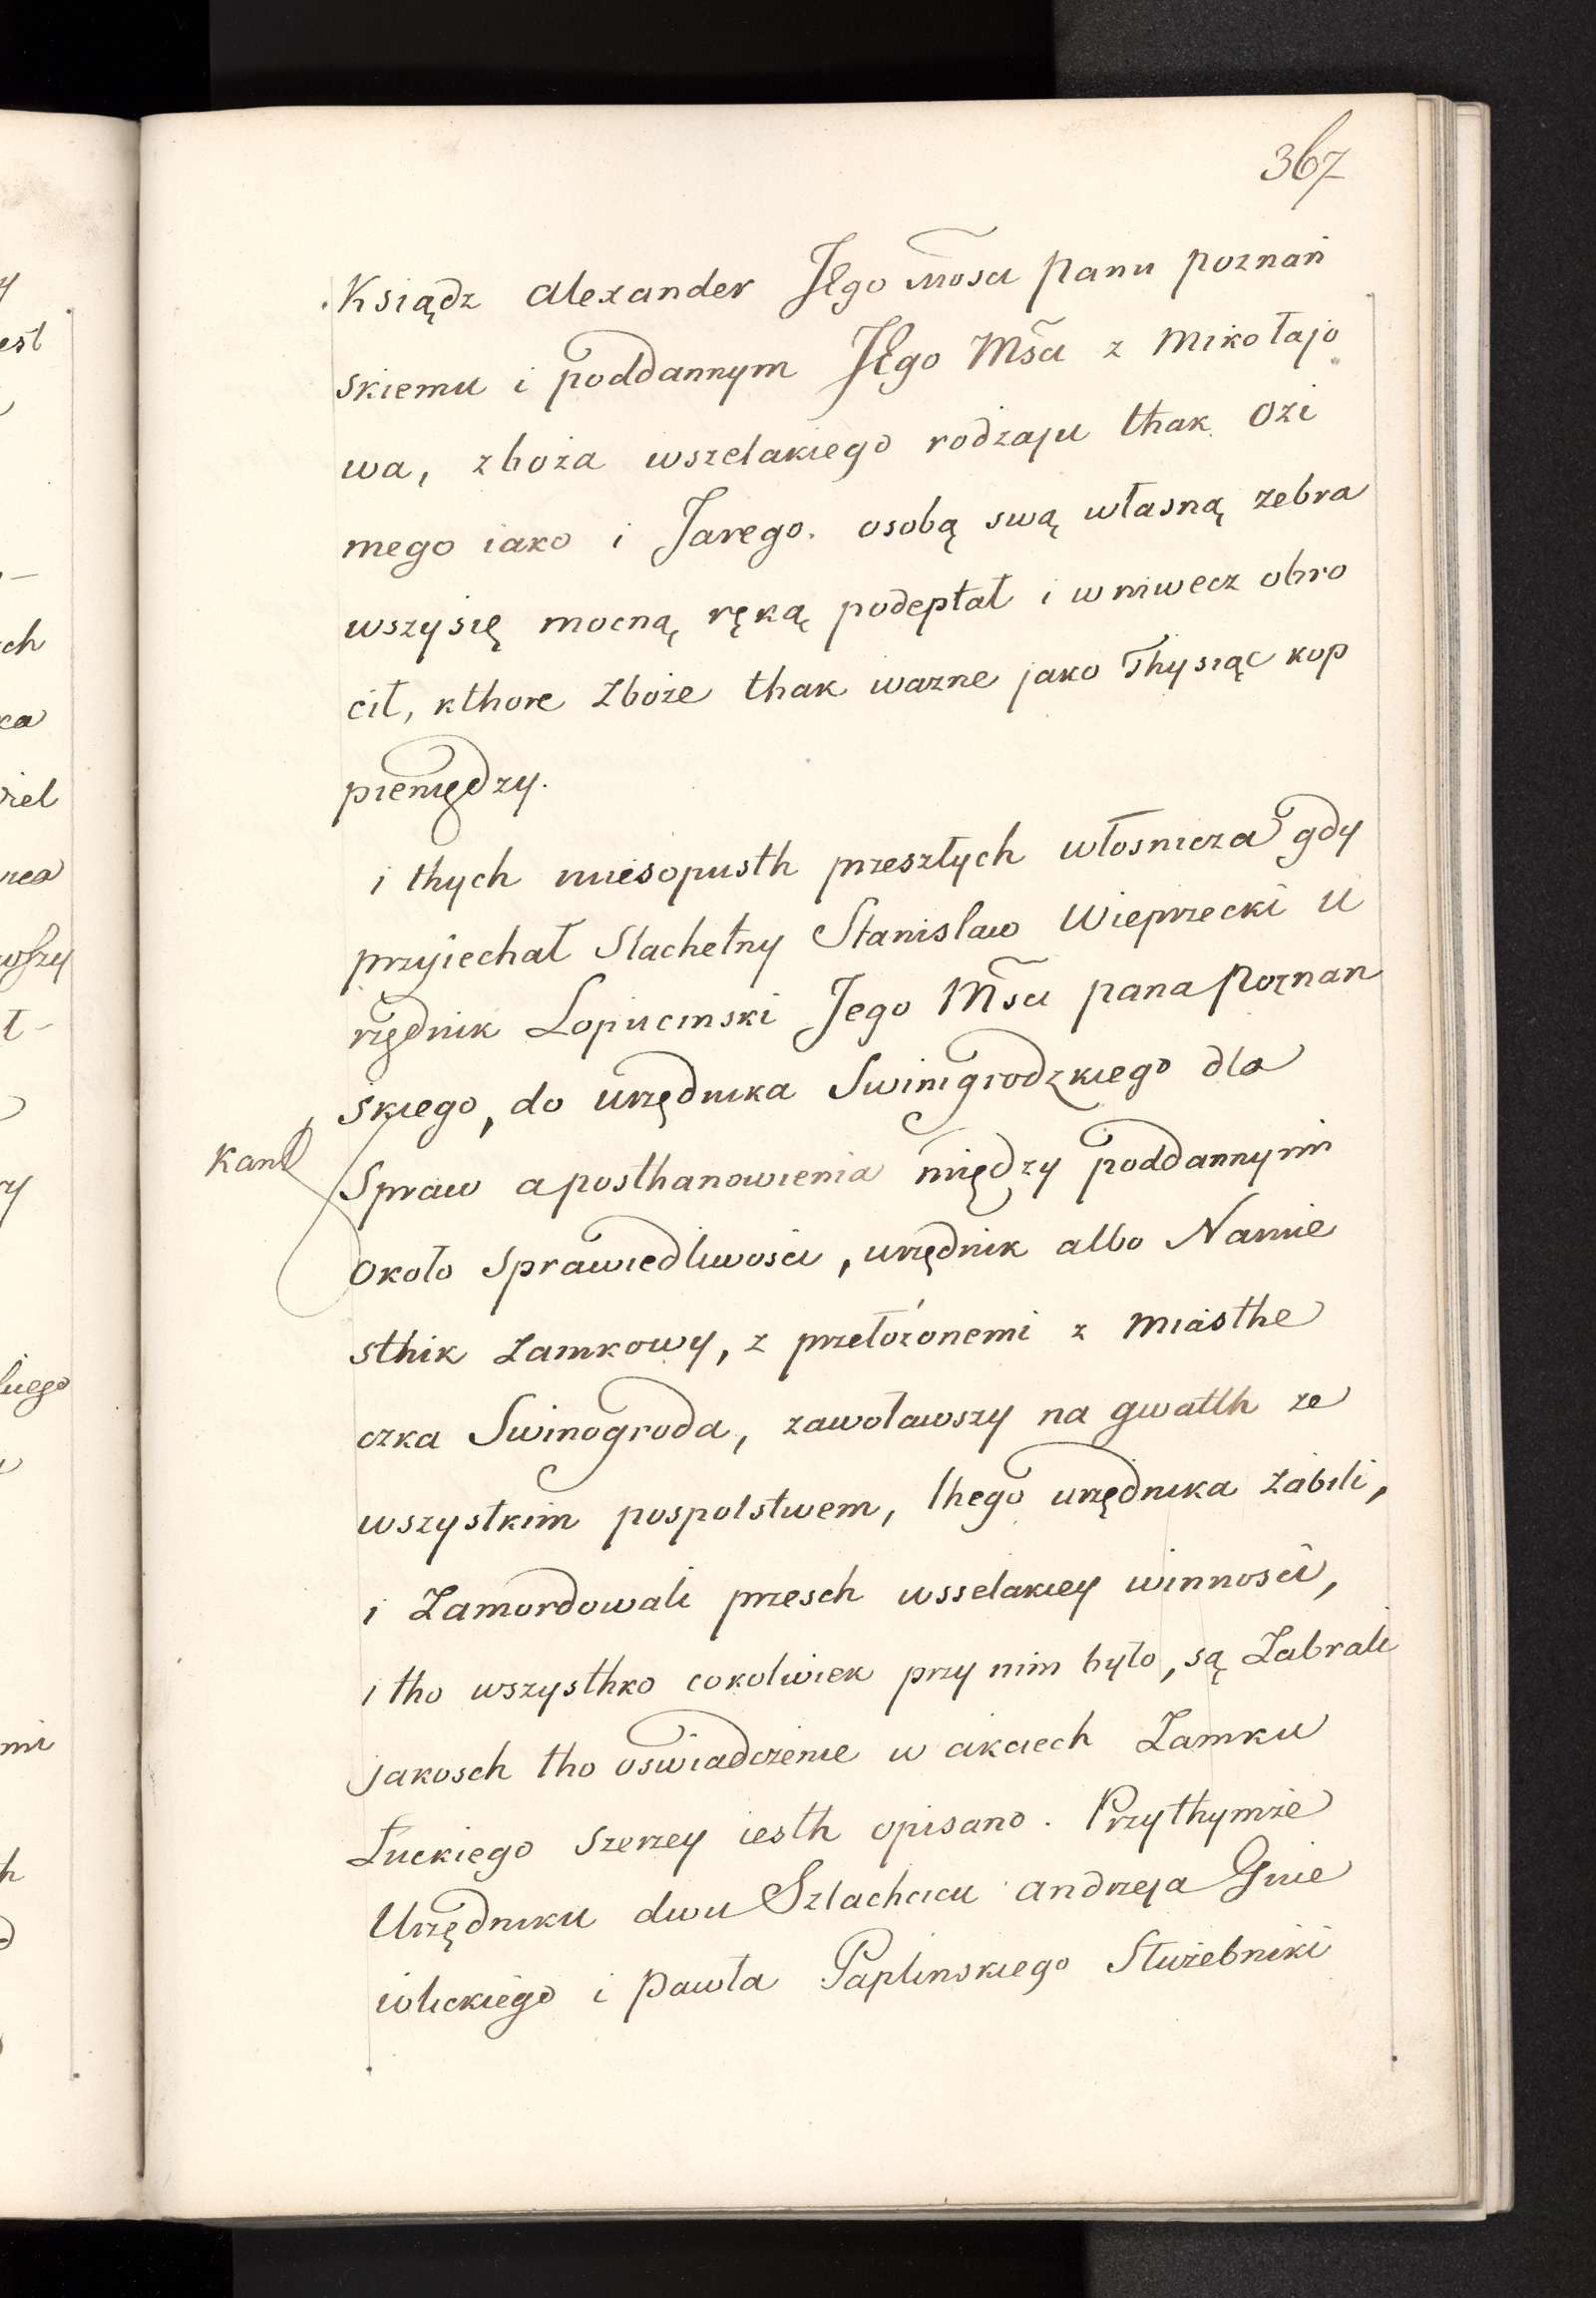 367
Ksiądz Alexander Jego Mosci Panu poznań
skiemu i poddannym Jego Msci z Mikołajo
wa, zboża wszelakiego rodzaju thak Ozi
mego iako i Jarego. osobą swą własną zebra
wszysię mocną ręką podeptał i wniwecz obro
cił, kthore Zboże thak wazne jako Thysiąc kop
pieniędzy.
i thych miesopusth przeszłych włosnicza gdy
przyiechał Slachetny Stanislaw Wieprzecki U
rzędnik Lopucinski Jego Msci pana Poznan
skiego, do urzędnika Swinigrodzkiego dla
Kant
Spraw aposthanowienia między poddannymi
około sprawiedliwości, urzędnik albo Namie
sthik Zamkowy, z przełożonemi z Miasthe
czka Swinogroda, zawoławszy na gwałth ze
wszystkim pospolstwem, thego urzędnika Zabili,
i Zamordowali przesch wsselakiey winności,
i tho wszysthko cokolwiek przy nim było, są Zabrali
jakosch tho oswiadczenie w akciech Zamku
Łuckiego szerzey iesth opisano. Przythymże
Urzędniku dwu Szlachcicu Andrzeja Gnie
wlickiego i Pawła Paplinskiego Służebniki